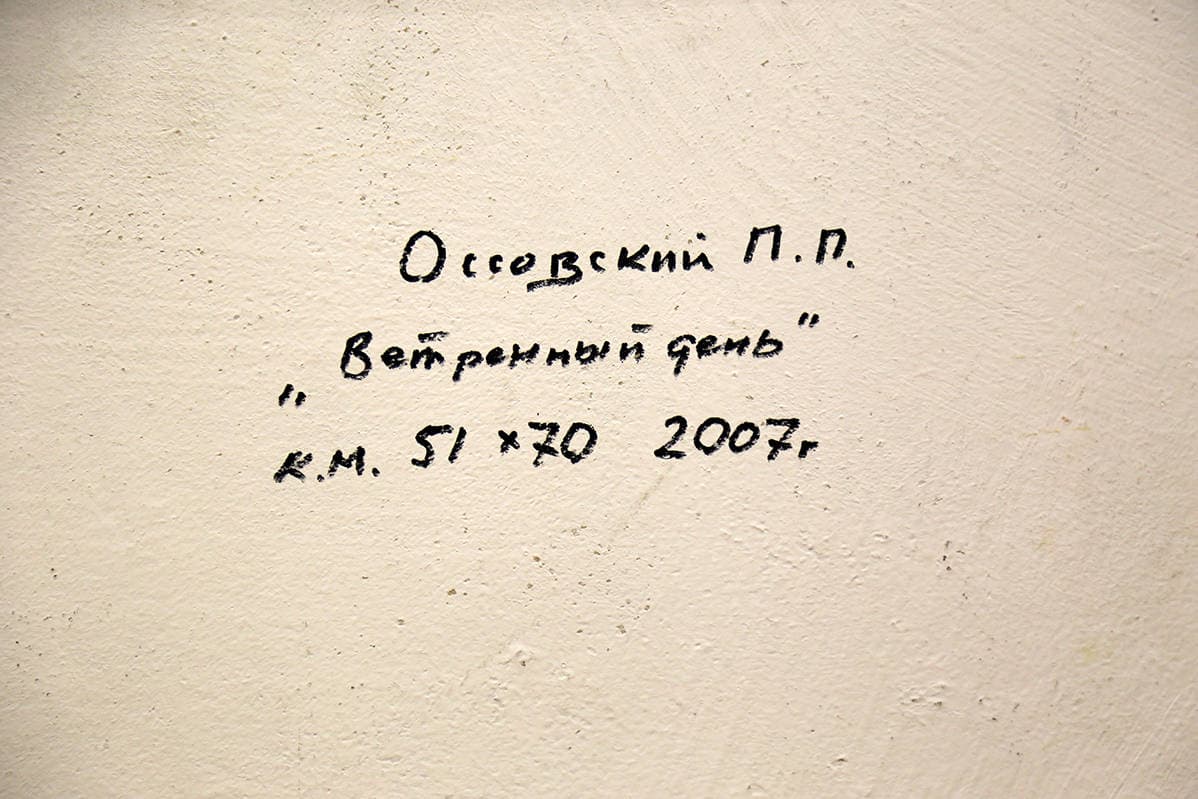 Оссовский П.П.
„Ветренный день"
к.м. 51×70 2007г